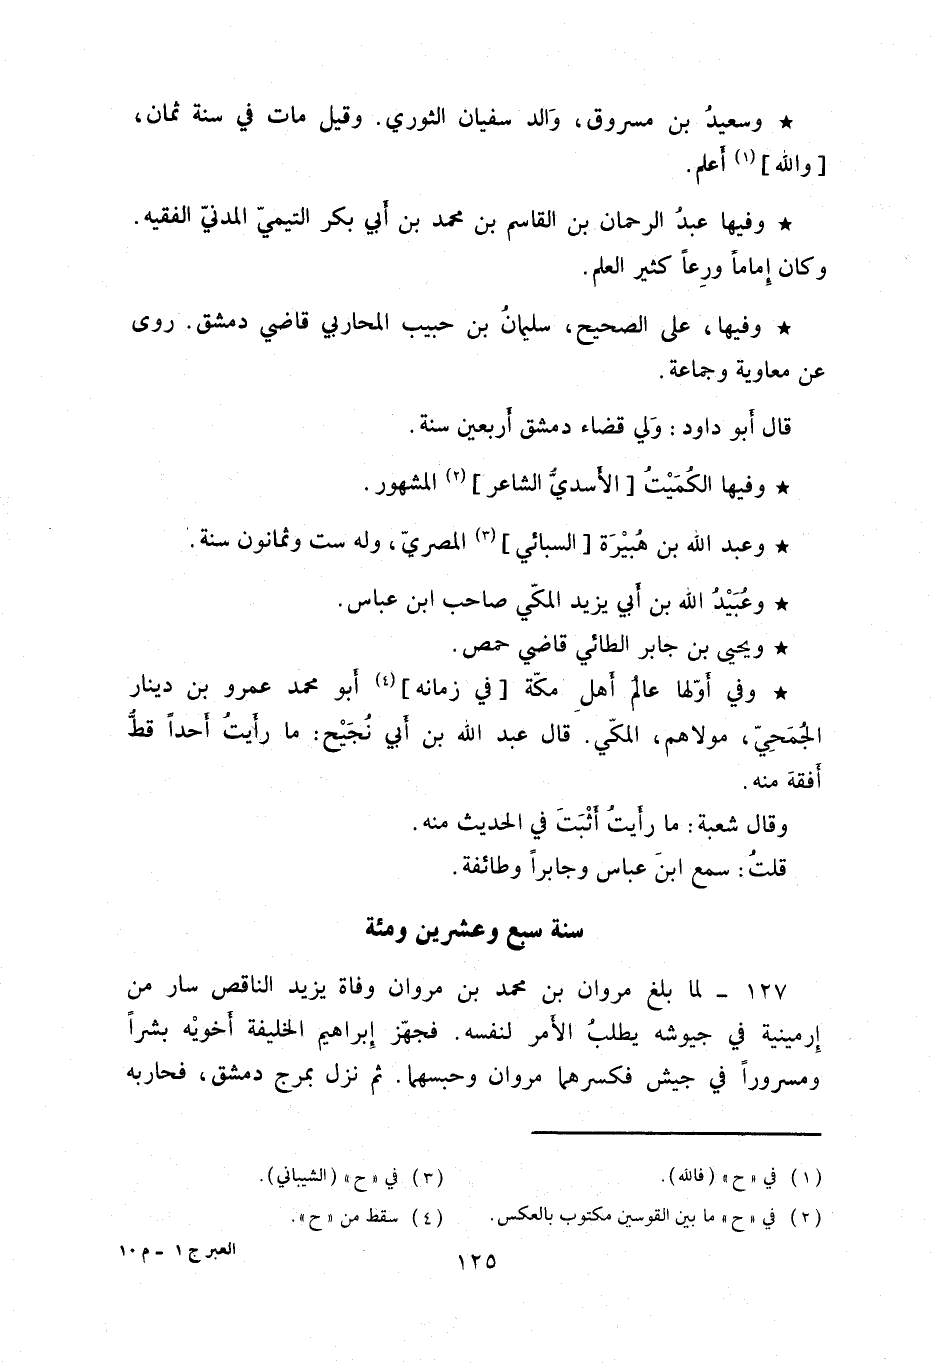 ★ وسعيدُ بن مسروق، وَالد سفيان الثوري. وقيل مات في سنة ثمان،
[ والله ] (١) أَعلم.
★ وفيها عبدُ الرحمان بن القاسم بن محمد بن أَبي بكر التيميّ المدنيّ الفقيه.
وكان إماماً ورِعاً كثير العلم.
★ وفيها، على الصحيح، سليمانُ بن حبيب المحاربي قاضي دمشق. روى
عن معاوية وجماعة.
قال أَبو داود : وَلي قضاء دمشق أَربعين سنة.
★ وفيها الكُمَيْتُ [ الأَسديُّ الشاعر ] (٢) المشهور.
★ وعبد الله بن هُبَيْرَة [ السبائي ] (٣) المصريّ، وله ست وثمانون سنة.
★ وعُبَيْدُ الله بن أَبي يزيد المكّي صاحب ابن عباس.
★ ويحيى بن جابر الطائي قاضي حمص.
★ وفي أَوّلها عالمُ أَهلِ مكّة [ في زمانه ] (٤) أَبو محمد عمرو بن دينار
الجُمَحِيّ، مولاهم، المكّي. قال عبد الله بن أَبي نُجَيْح: ما رأَيتُ أَحداً قطُّ
أَفقهَ منه.
وقال شعبة: ما رأَيتُ أَثْبَتَ في الحديث منه.
قلتُ: سمع ابنَ عباس وجابراً وطائفة.
سنة سبع وعشرين ومئة
١٢٧ ـ لما بلغ مروان بن محمد بن مروان وفاة يزيد الناقص سار من
إرمينية في جيوشه يطلبُ الأَمر لنفسه. فجهّز إبراهيم الخليفة أَخويْه بشراً
ومسروراً في جيش فكسرهما مروان وحبسهما. ثم نزل بمرج دمشق، فحاربه
(١) في « ح » (فالله).
(٢) في « ح » ما بين القوسين مكتوب بالعكس.
(٣) في « ح » (الشيباني).
(٤) سقط من « ح ».
١٢٥
العبر ج ١ ـ م ١٠